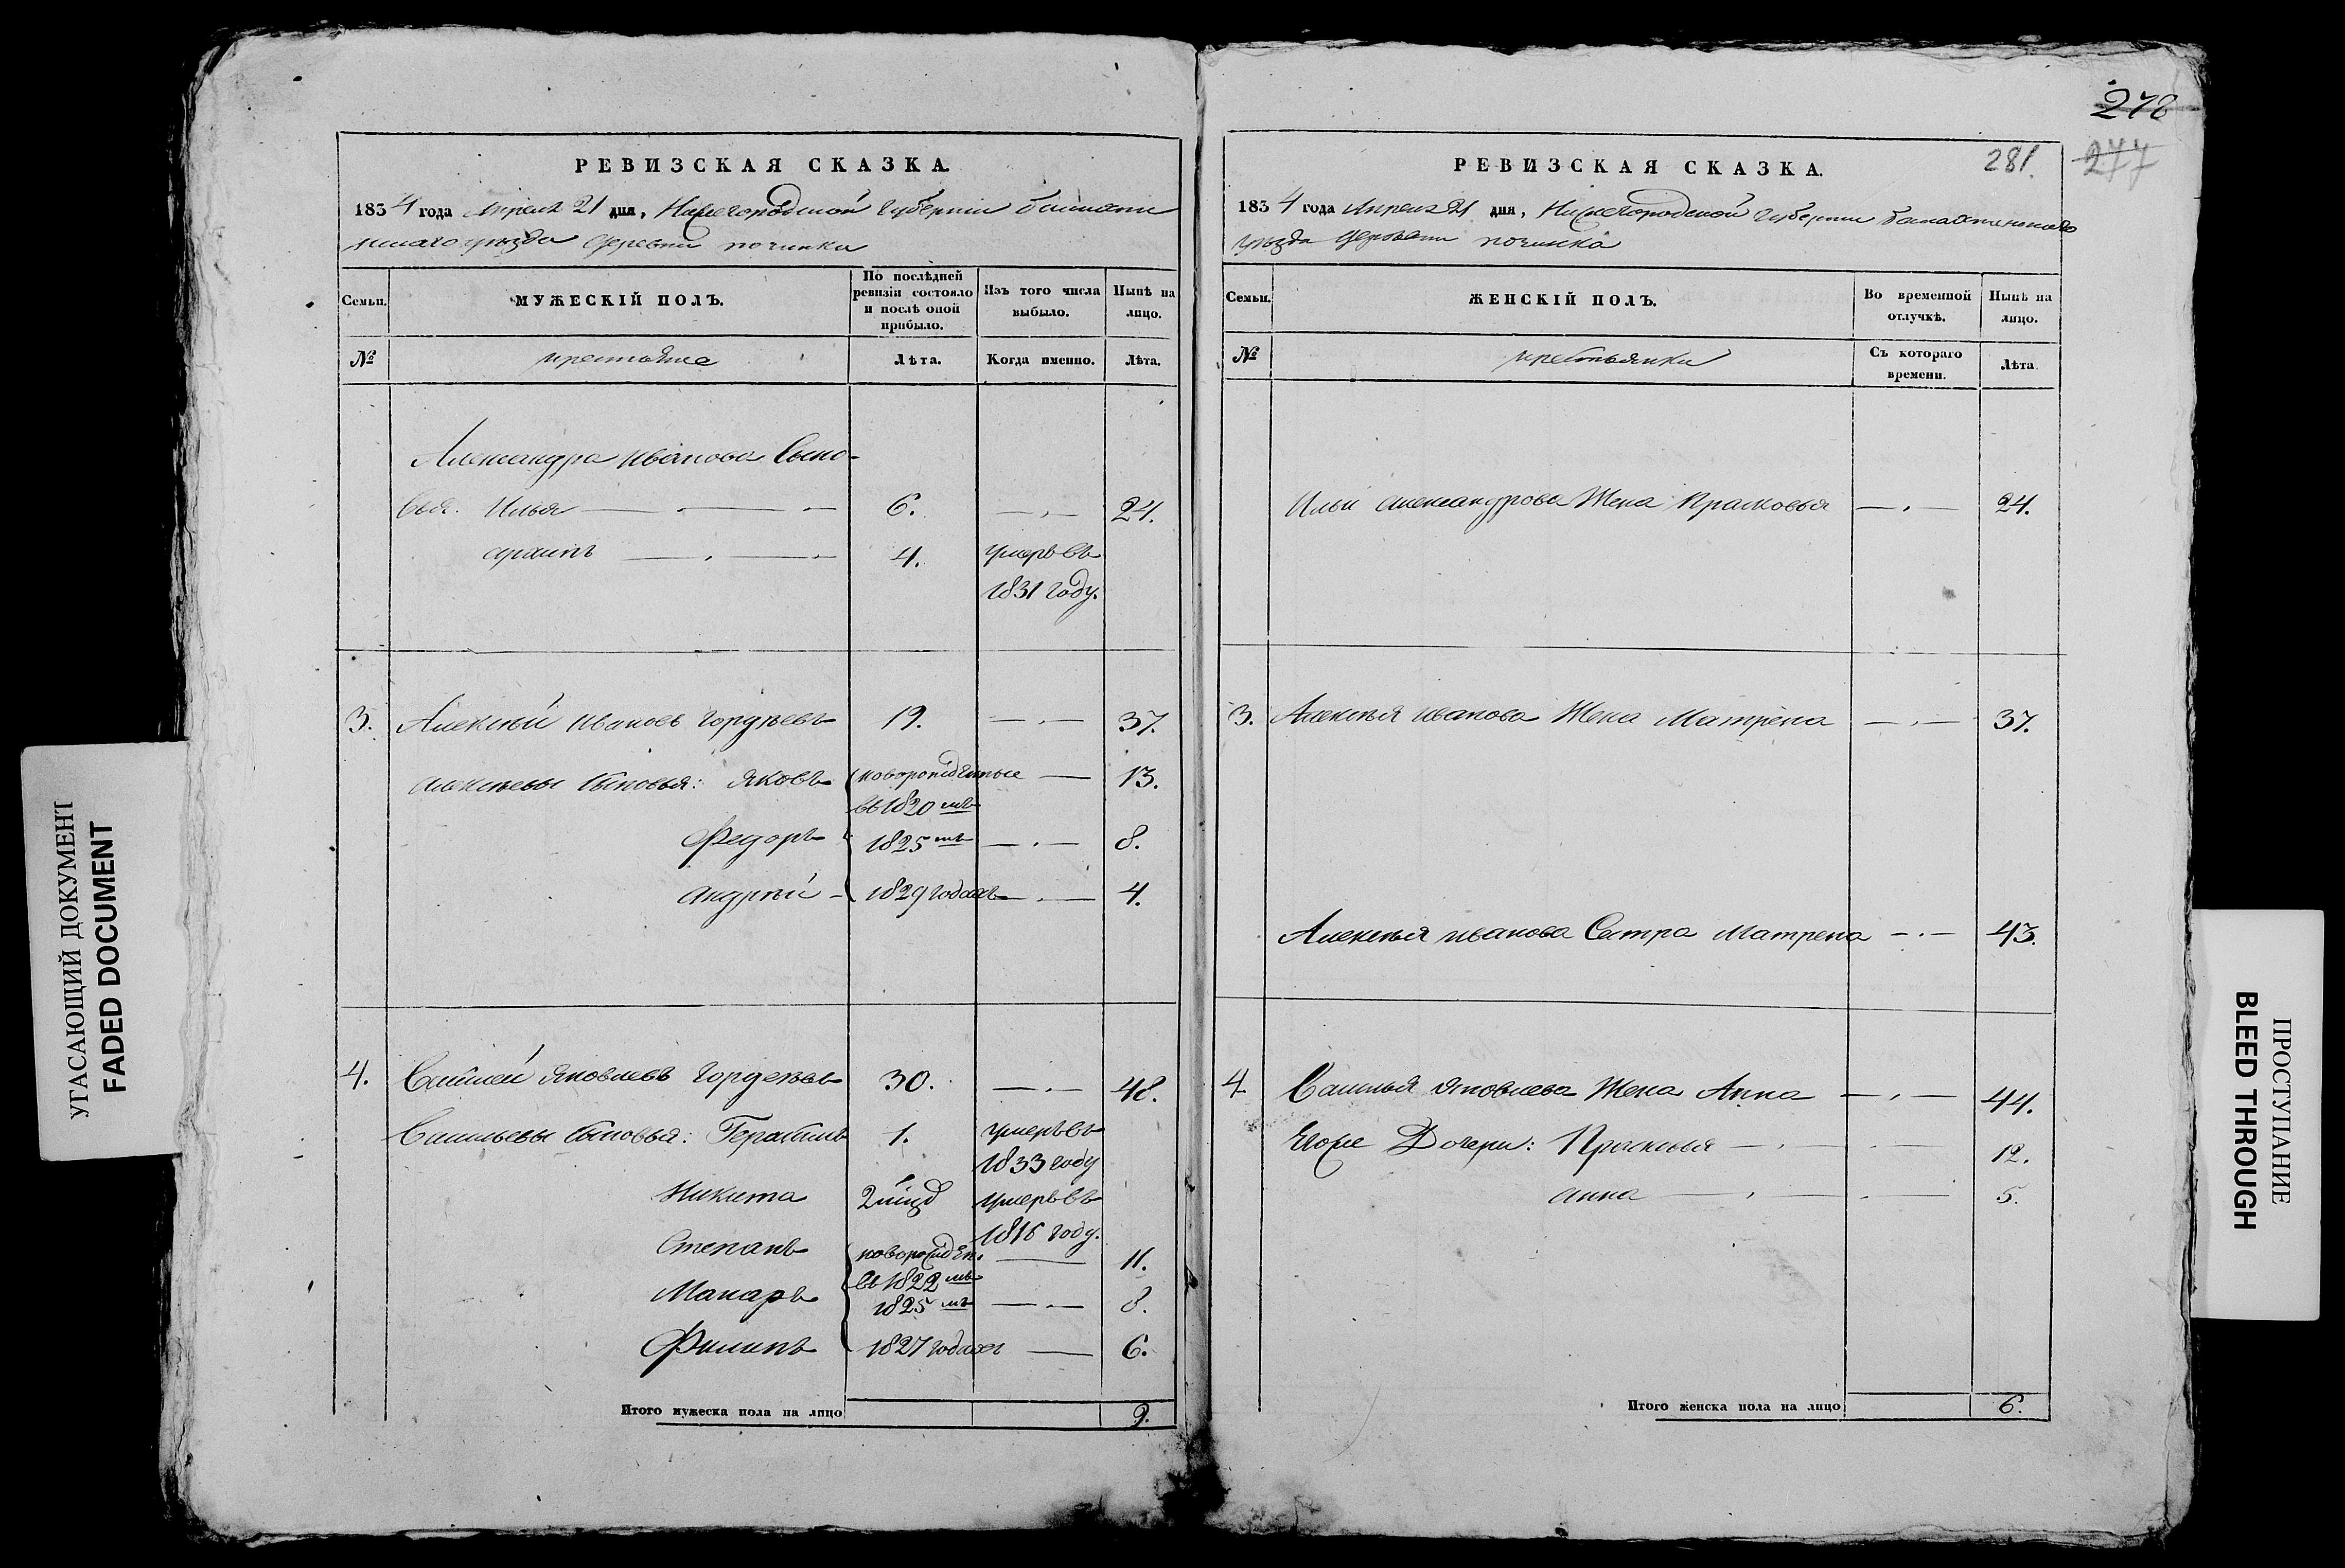 УГАСАЮЩИЙ ДОКУМЕНТ
FADED DOCUMENT
РЕВИЗСКАЯ СКАЗКА.
1834 года Апреля 21 дня, Нижегородской Губернии Балахни
нскаго уезда деревни починка
Семьи.
МУЖЕСКІЙ ПОЛЪ.
По послѣдней ревизіи состояло и послѣ оной прибыло.
Изъ того числа выбыло.
Нынѣ на лицо.
№
крестьяне
Лѣта.
Когда именно.
Лѣта.
Александра иванова Сыно-
вья. Илья 6. 24.
архипъ 4. умеръ въ
1831 году.
3. Алексѣй ивановъ гордѣевъ 19. 37.
алексѣевы сыновья: яковъ новорожденные 13.
въ 1820 мъ
Федоръ 1825 мъ 8.
андрѣй 1829 годахъ 4.
4. яковлевъ гордеевъ 30. 48.
сыновья: Герасимъ 1. умеръ въ
1833 году
Никита умеръ въ
1816 году.
Степанъ новорожден. 11.
въ 1822 мъ
Макаръ 1825 мъ 8.
Филипъ 1827 годахъ 6.
Итого мужеска пола на лицо 9.
278
277
281.
РЕВИЗСКАЯ СКАЗКА.
1834 года Апреля 21 дня, Нижегородской Губернии Балахнинскаго
уезда деревни починка
Семьи.
ЖЕНСКІЙ ПОЛЪ.
Во временной отлучкѣ.
Нынѣ на лицо.
№
крестьянки
Съ котораго времени.
Лѣта
Ильи александрова Жена Прасковья 24.
3. Алексѣя иванова Жена Матрена 37.
Алексѣя иванова Сестра Матрена 43.
4 яковлева Жена Анна 44.
Егоже Дочери: 12.
анна 5.
Итого женска пола на лицо 6.
ПРОСТУПАНИЕ
BLEED THROUGH